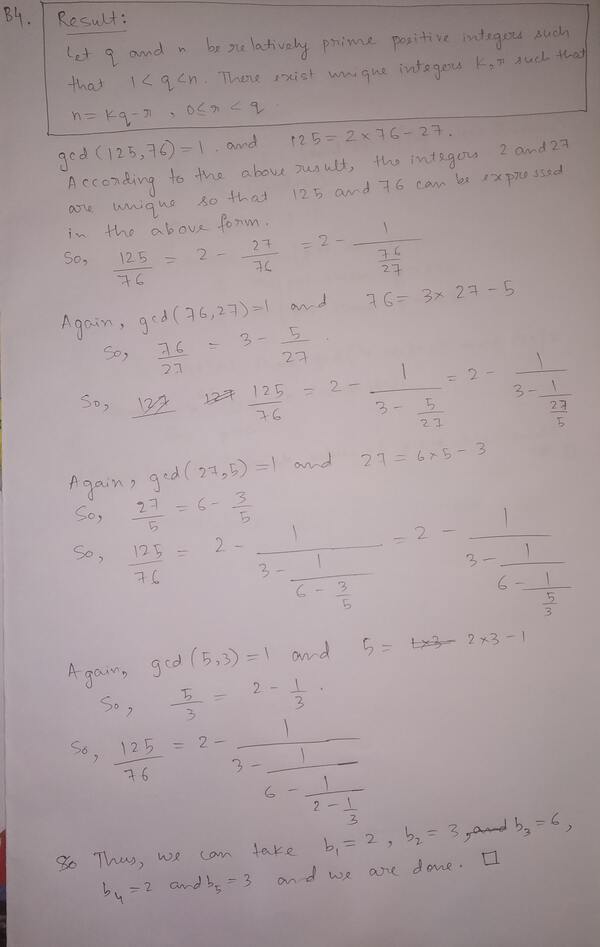 B4. Result:
Let q and n be relatively prime positive integers such
that 1 < q < n. There exist unique integers k, r such that
n = kq - r , 0 ≤ r < q.
gcd(125,76) = 1. and 125 = 2 × 76 - 27.
According to the above result, the integers 2 and 27
are unique so that 125 and 76 can be expressed
in the above form.
So, 125/76 = 2 - 27/76 = 2 - 1/(76/27)
Again, gcd(76,27)=1 and 76 = 3 × 27 - 5
So, 76/27 = 3 - 5/27.
So, 127 127 125/76 = 2 - 1/(3 - 5/27) = 2 - 1/(3 - 1/(27/5))
Again, gcd(27,5) = 1 and 27 = 6 × 5 - 3
So, 27/5 = 6 - 3/5
So, 125/76 = 2 - 1/(3 - 1/(6 - 3/5)) = 2 - 1/(3 - 1/(6 - 1/(5/3)))
Again, gcd(5,3) = 1 and 5 = 1×3- 2×3-1
So, 5/3 = 2 - 1/3.
So, 125/76 = 2 - 1/(3 - 1/(6 - 1/(2 - 1/3)))
So Thus, we can take b₁ = 2, b₂ = 3, and b₃ = 6,
b₄ = 2 and b₅ = 3 and we are done. □